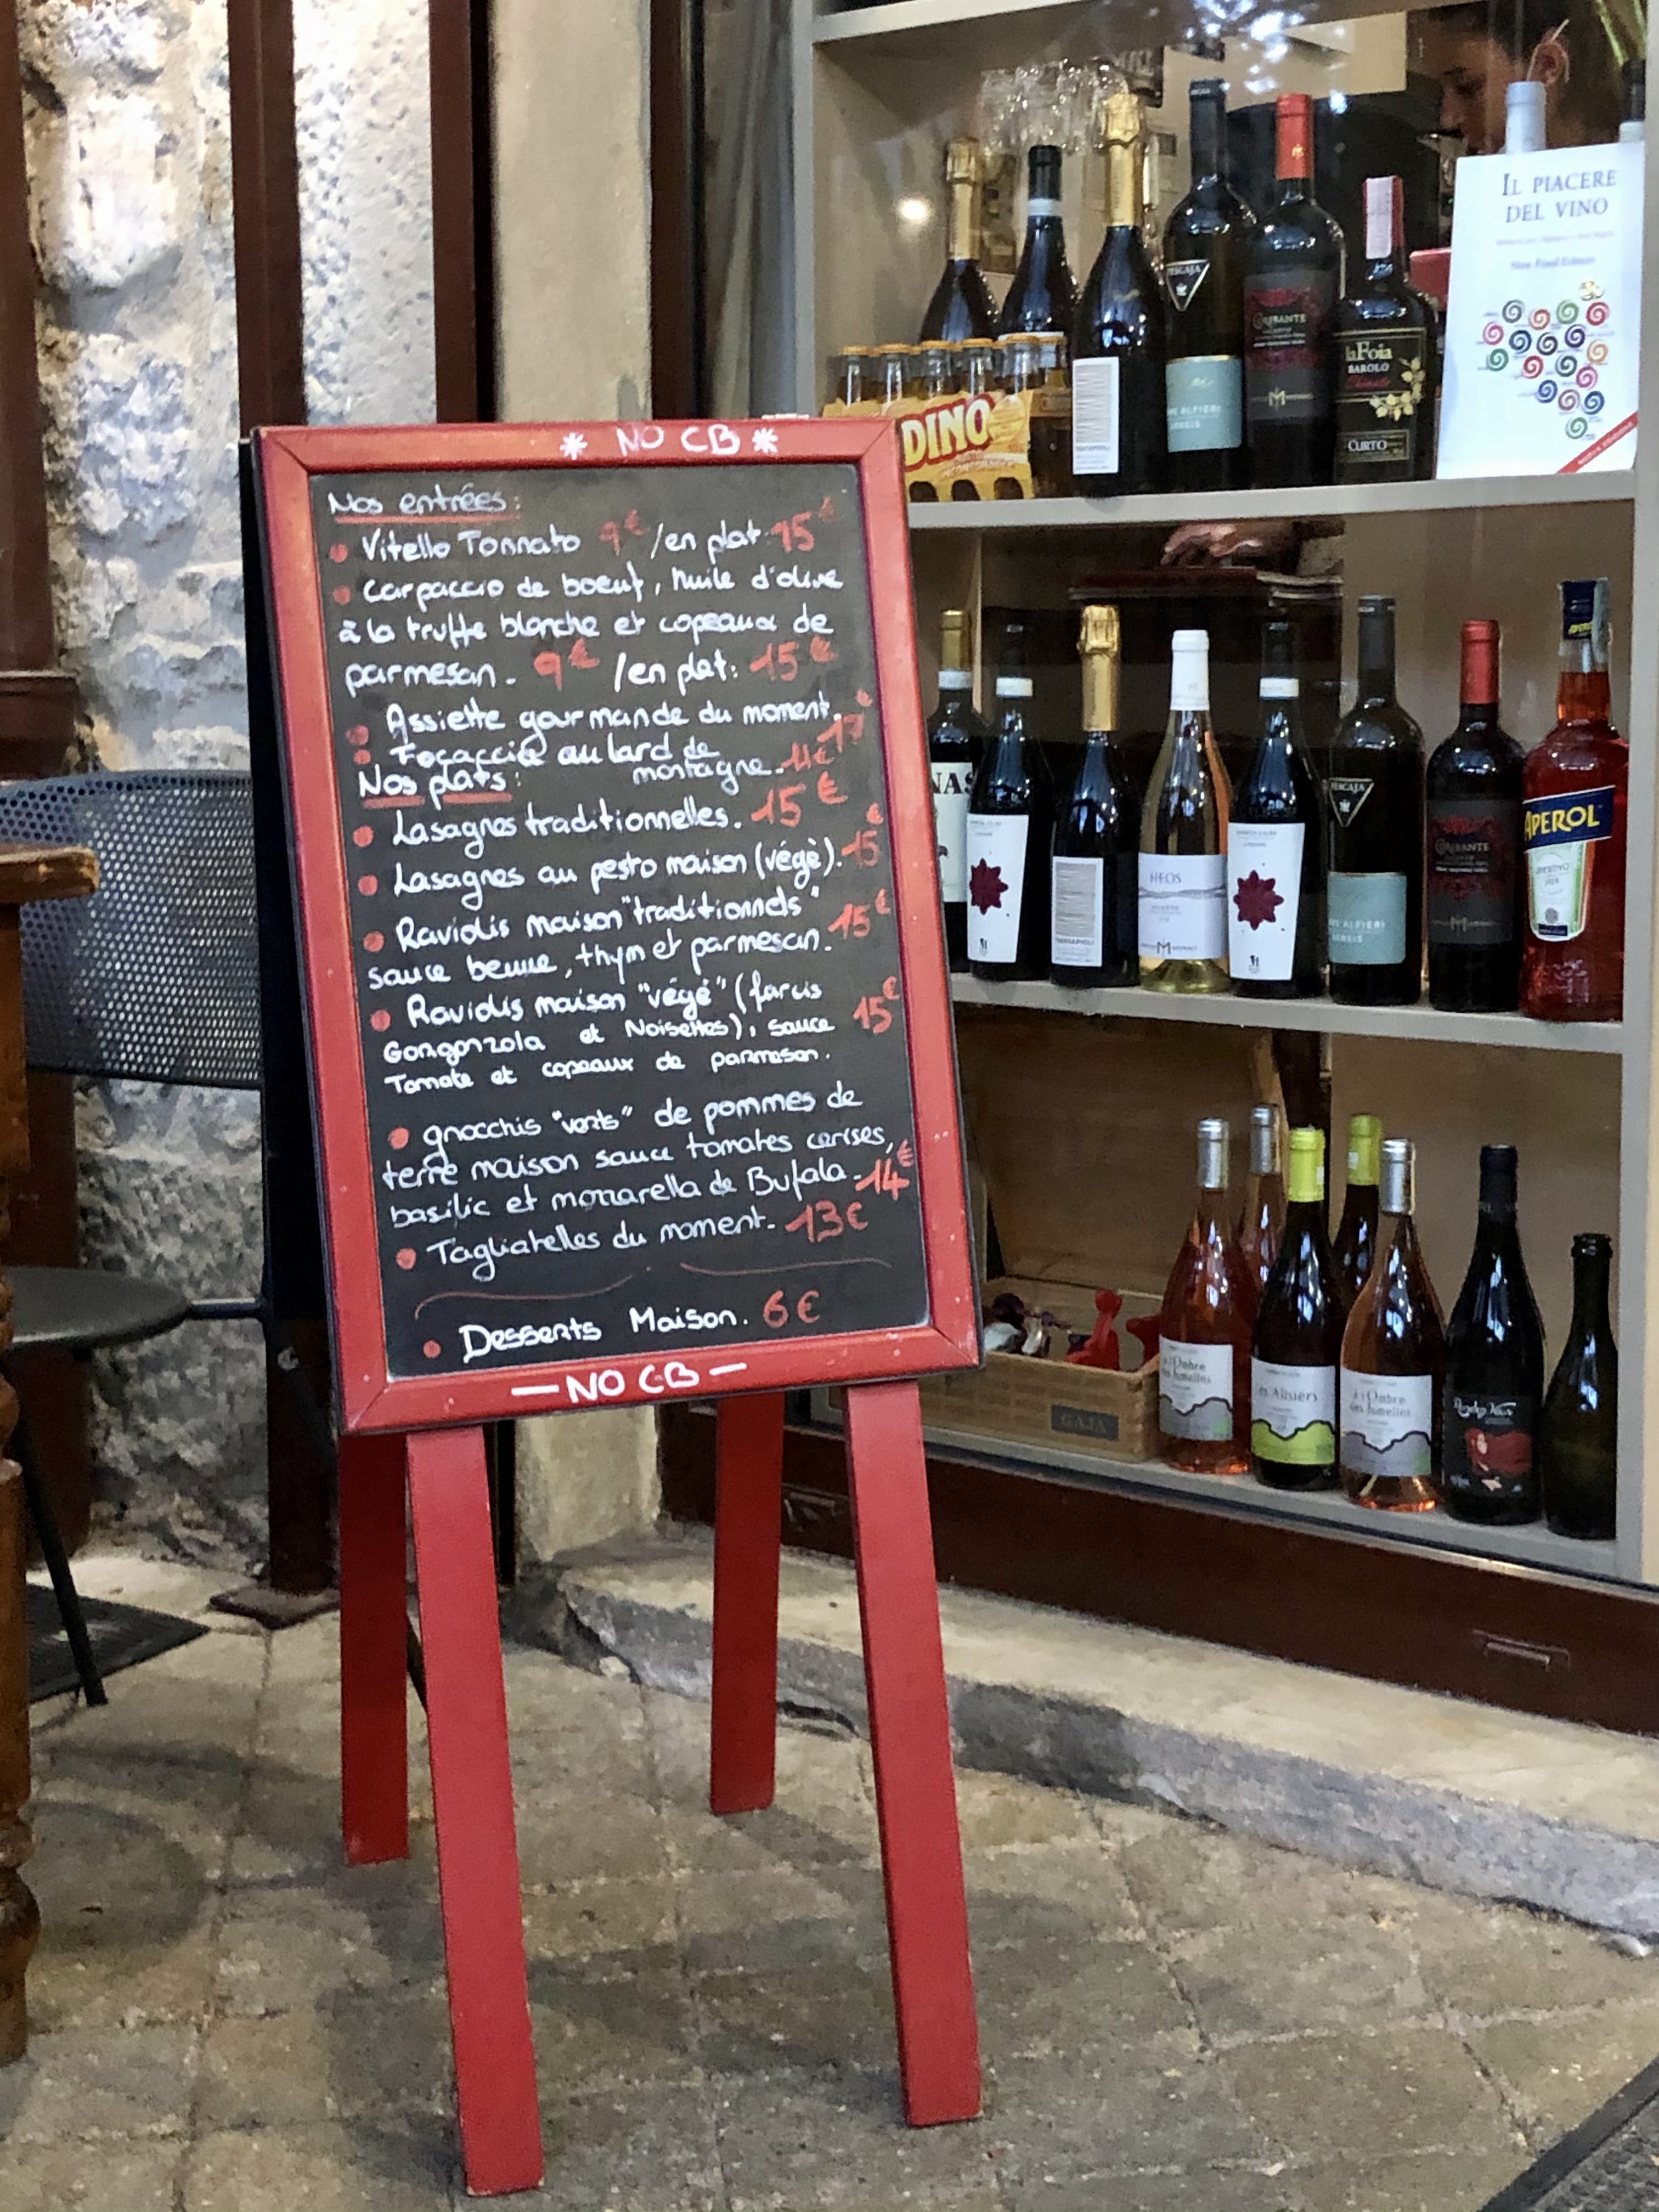 * NO CB *
Nos entrées:
Vitello Tonnato 9€ /en plat: 15€
Carpaccio de boeuf, huile d'olive
à la truffe blanche et copeaux de
parmesan. 9€ /en plat: 15€
Assiette gourmande du moment. 17€
Focaccia au lard de
montagne. 11€
Nos plats:
Lasagnes traditionnelles. 15€
Lasagnes au pesto maison (végé). 15€
Raviolis maison "traditionnels"
sauce beurre, thym et parmesan. 15€
Raviolis maison "végé" (farcis
Gorgonzola et Noisettes), sauce 15€
Tomate et copeaux de parmesan.
gnocchis "verts" de pommes de
terre maison sauce tomates cerises,
basilic et mozzarella de Bufala. 14€
Tagliatelles du moment. 13€
Desserts Maison. 6€
— NO CB —
IL PIACERE
DEL VINO
New Food Edition
DINO
PESCAJA
ALFIERI
laFoia
BAROLO
CURTO
HEOS
PESCAJA
ALFIERI
APEROL
GAJA
à l'Ombre
des Jumelles
Les Alisiers
à l'Ombre
des Jumelles